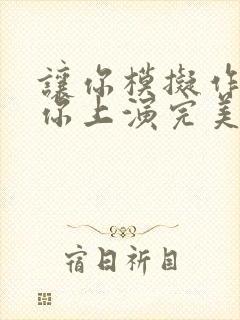 讓你模擬作
你上演完美
宿日祈目